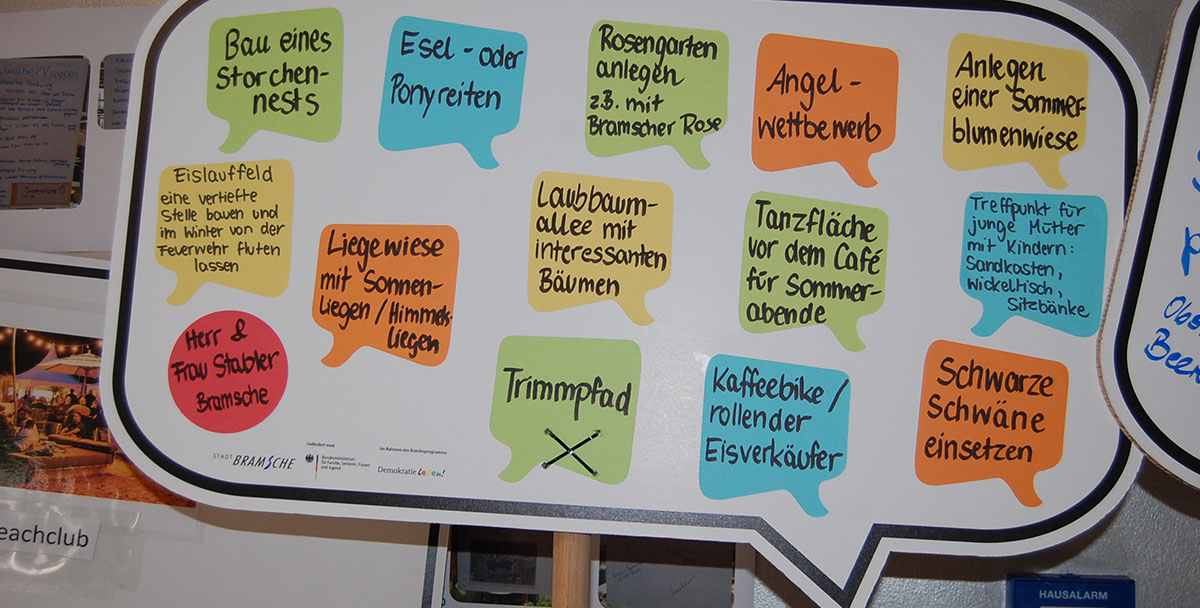 Bau eines
Storchen-
nests
Esel - oder
Ponyreiten
Rosengarten
anlegen
z.B. mit
Bramscher Rose
Angel -
wettbewerb
Anlegen
einer Sommer-
blumenwiese
Eislauffeld
eine vertiefte
Stelle bauen und
im Winter von der
Feuerwehr fluten
lassen
Liegewiese
mit Sonnen-
liegen / Himmels-
liegen
Laubbaum-
allee mit
interessanten
Bäumen
Tanzfläche
vor dem Café
für Sommer-
abende
Treffpunkt für
junge Mütter
mit Kindern:
Sandkasten,
Wickeltisch,
Sitzbänke
Herr &
Frau Stabler
Bramsche
Trimmpfad
Kaffeebike /
rollender
Eisverkäufer
Schwarze
Schwäne
einsetzen
STADT BRAMSCHE
Gefördert vom
Bundesministerium
für Familie, Senioren, Frauen
und Jugend
Im Rahmen des Bundesprogramms
Demokratie Leben!
eachclub
Beer
HAUSALARM